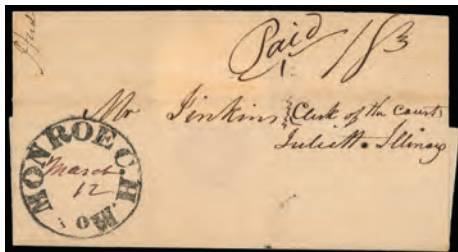 Paid 18¾
Mr Jinkins Clerk of the Courts
Juliett. Illinois
MONROE C.H. Mo
March
12